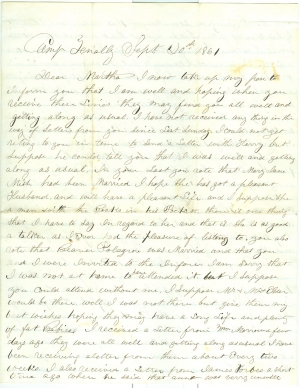 Camp Tenally Sept 30th 1861
Dear Martha I now take up my pen to
inform you that I am well and hoping when you
receive these lines they may find you all well and
getting along as usual. I have not received any thing in the
way of Letter from you since last Sunday I could not get
to you in time to send a Letter with Harry but
suppose he could tell you that I was well and getting
along as usual. In your Last you note that Mary Jane
had been Married. I hope she has got a pleasant
Husband, and will have a pleasant and I suppose the
a man with the in his Pocket there is one thing
that I have to say in regard to her and that is she is as good
a talker as I ever had the pleasure of listing to. you also
note that was Married and that you
and I were Invited to the I am Sorry that
I was not at home to have attended it but I suppose
you could attend without me. I suppose Mr & Mrs
would be there, well I was not there but give them my
best wishes hoping they may have a Long Life and plenty
of fat Babies. I received a Letter from Mr a few
days ago they were all well and getting along as usual I have
been receiving a letter from them about every two
weeks. I also received a Letter from James a short
time ago when he said that aunt was very much